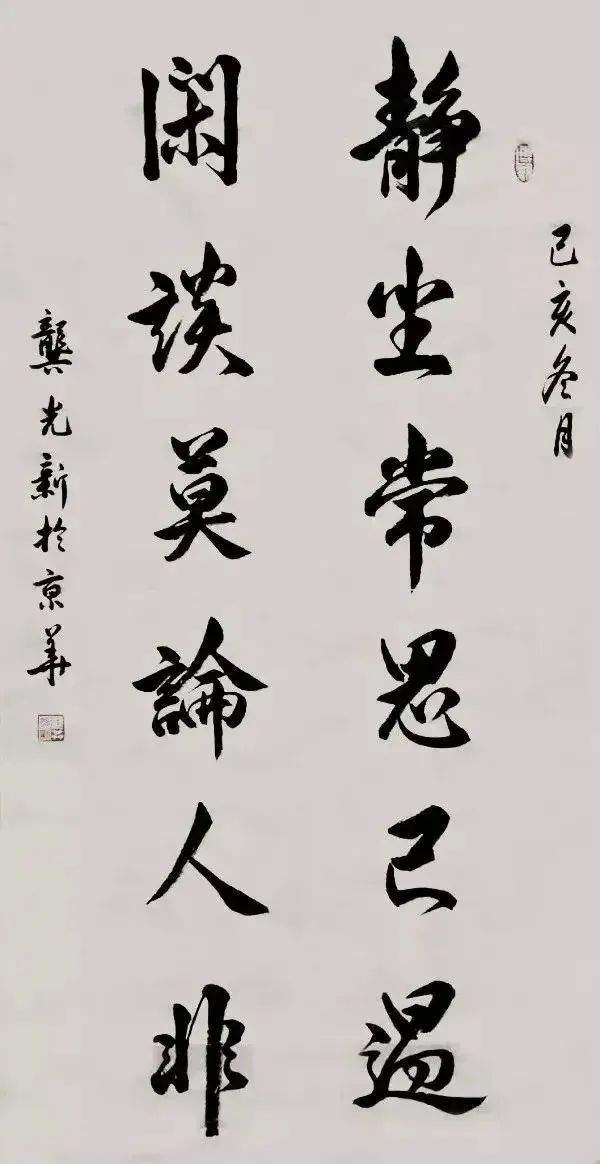 己亥冬月
静坐常思己過
閑談莫論人非
龔光新於京華